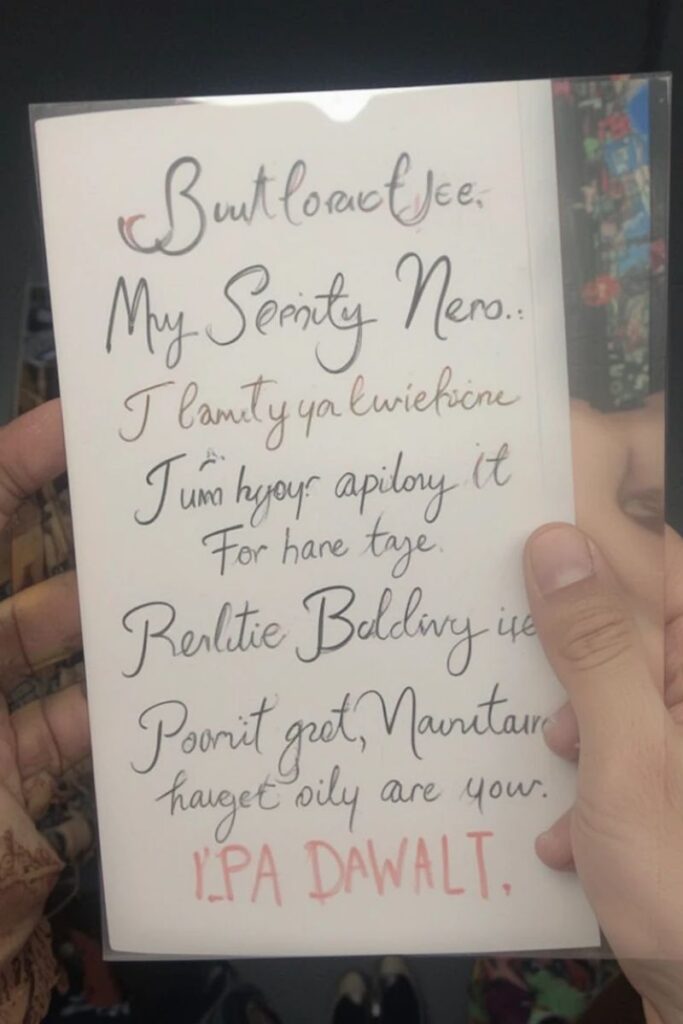 Buutloract Jee.
My Sepnity Nero..:
I lamity ya kwiehicne
I um hyour apilony it
For hane taye.
Reslitie Boldivy
Poornit grot,
hauget oily are your.
I!PA DAWALT.